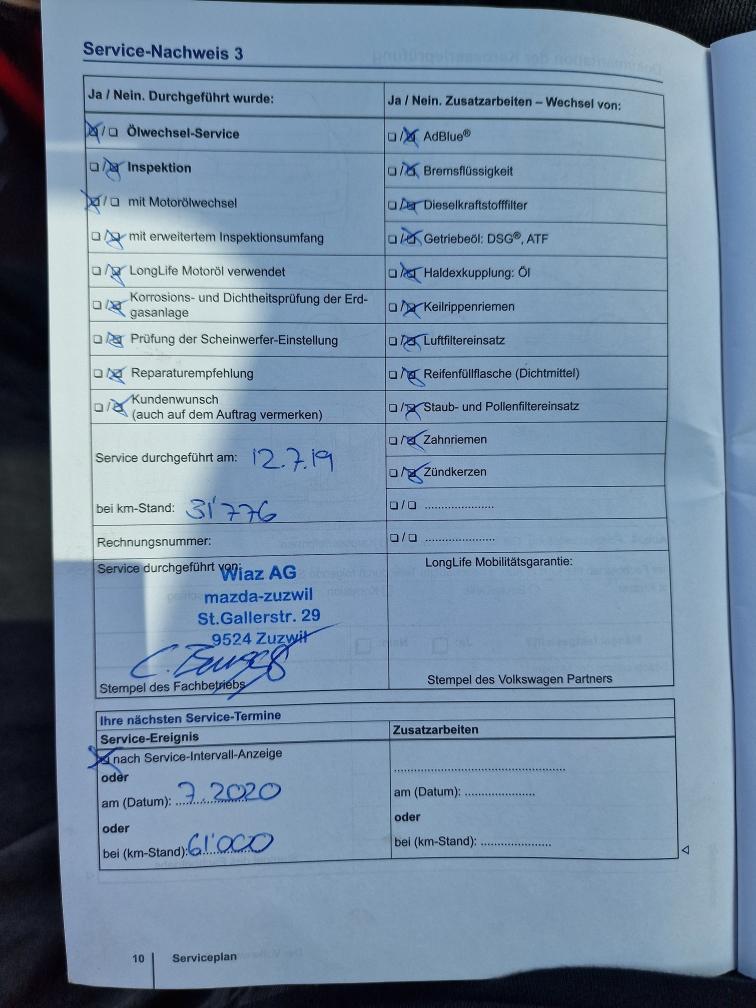 Service-Nachweis 3
Ja / Nein. Durchgeführt wurde:
☒/☐ Ölwechsel-Service
☐/☒ Inspektion
☒/☐ mit Motorölwechsel
☐/☒ mit erweitertem Inspektionsumfang
☐/☒ LongLife Motoröl verwendet
☐/☒ Korrosions- und Dichtheitsprüfung der Erd-
gasanlage
☐/☒ Prüfung der Scheinwerfer-Einstellung
☐/☒ Reparaturempfehlung
☐/☒ Kundenwunsch
(auch auf dem Auftrag vermerken)
Service durchgeführt am: 12.7.19
bei km-Stand: 31'776
Rechnungsnummer:
Service durchgeführt von:
Wiaz AG
mazda-zuzwil
St.Gallerstr. 29
9524 Zuzwil
Stempel des Fachbetriebs
Ja / Nein. Zusatzarbeiten – Wechsel von:
☐/☒ AdBlue®
☐/☒ Bremsflüssigkeit
☐/☒ Dieselkraftstofffilter
☐/☒ Getriebeöl: DSG®, ATF
☐/☒ Haldexkupplung: Öl
☐/☒ Keilrippenriemen
☐/☒ Luftfiltereinsatz
☐/☒ Reifenfüllflasche (Dichtmittel)
☐/☒ Staub- und Pollenfiltereinsatz
☐/☒ Zahnriemen
☐/☒ Zündkerzen
☐/☐ .....................
☐/☐ .....................
LongLife Mobilitätsgarantie:
Stempel des Volkswagen Partners
Ihre nächsten Service-Termine
Service-Ereignis
☒ nach Service-Intervall-Anzeige
oder
am (Datum): 7.2020
oder
bei (km-Stand): 61'000
Zusatzarbeiten
.....................................................
am (Datum): .....................
oder
bei (km-Stand): .....................
10 Serviceplan